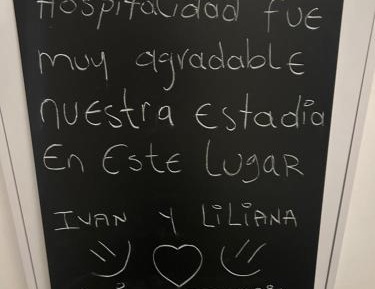 Hospitalidad fue
muy agradable
nuestra Estadia
En Este Lugar
IVAN Y LiLiANA